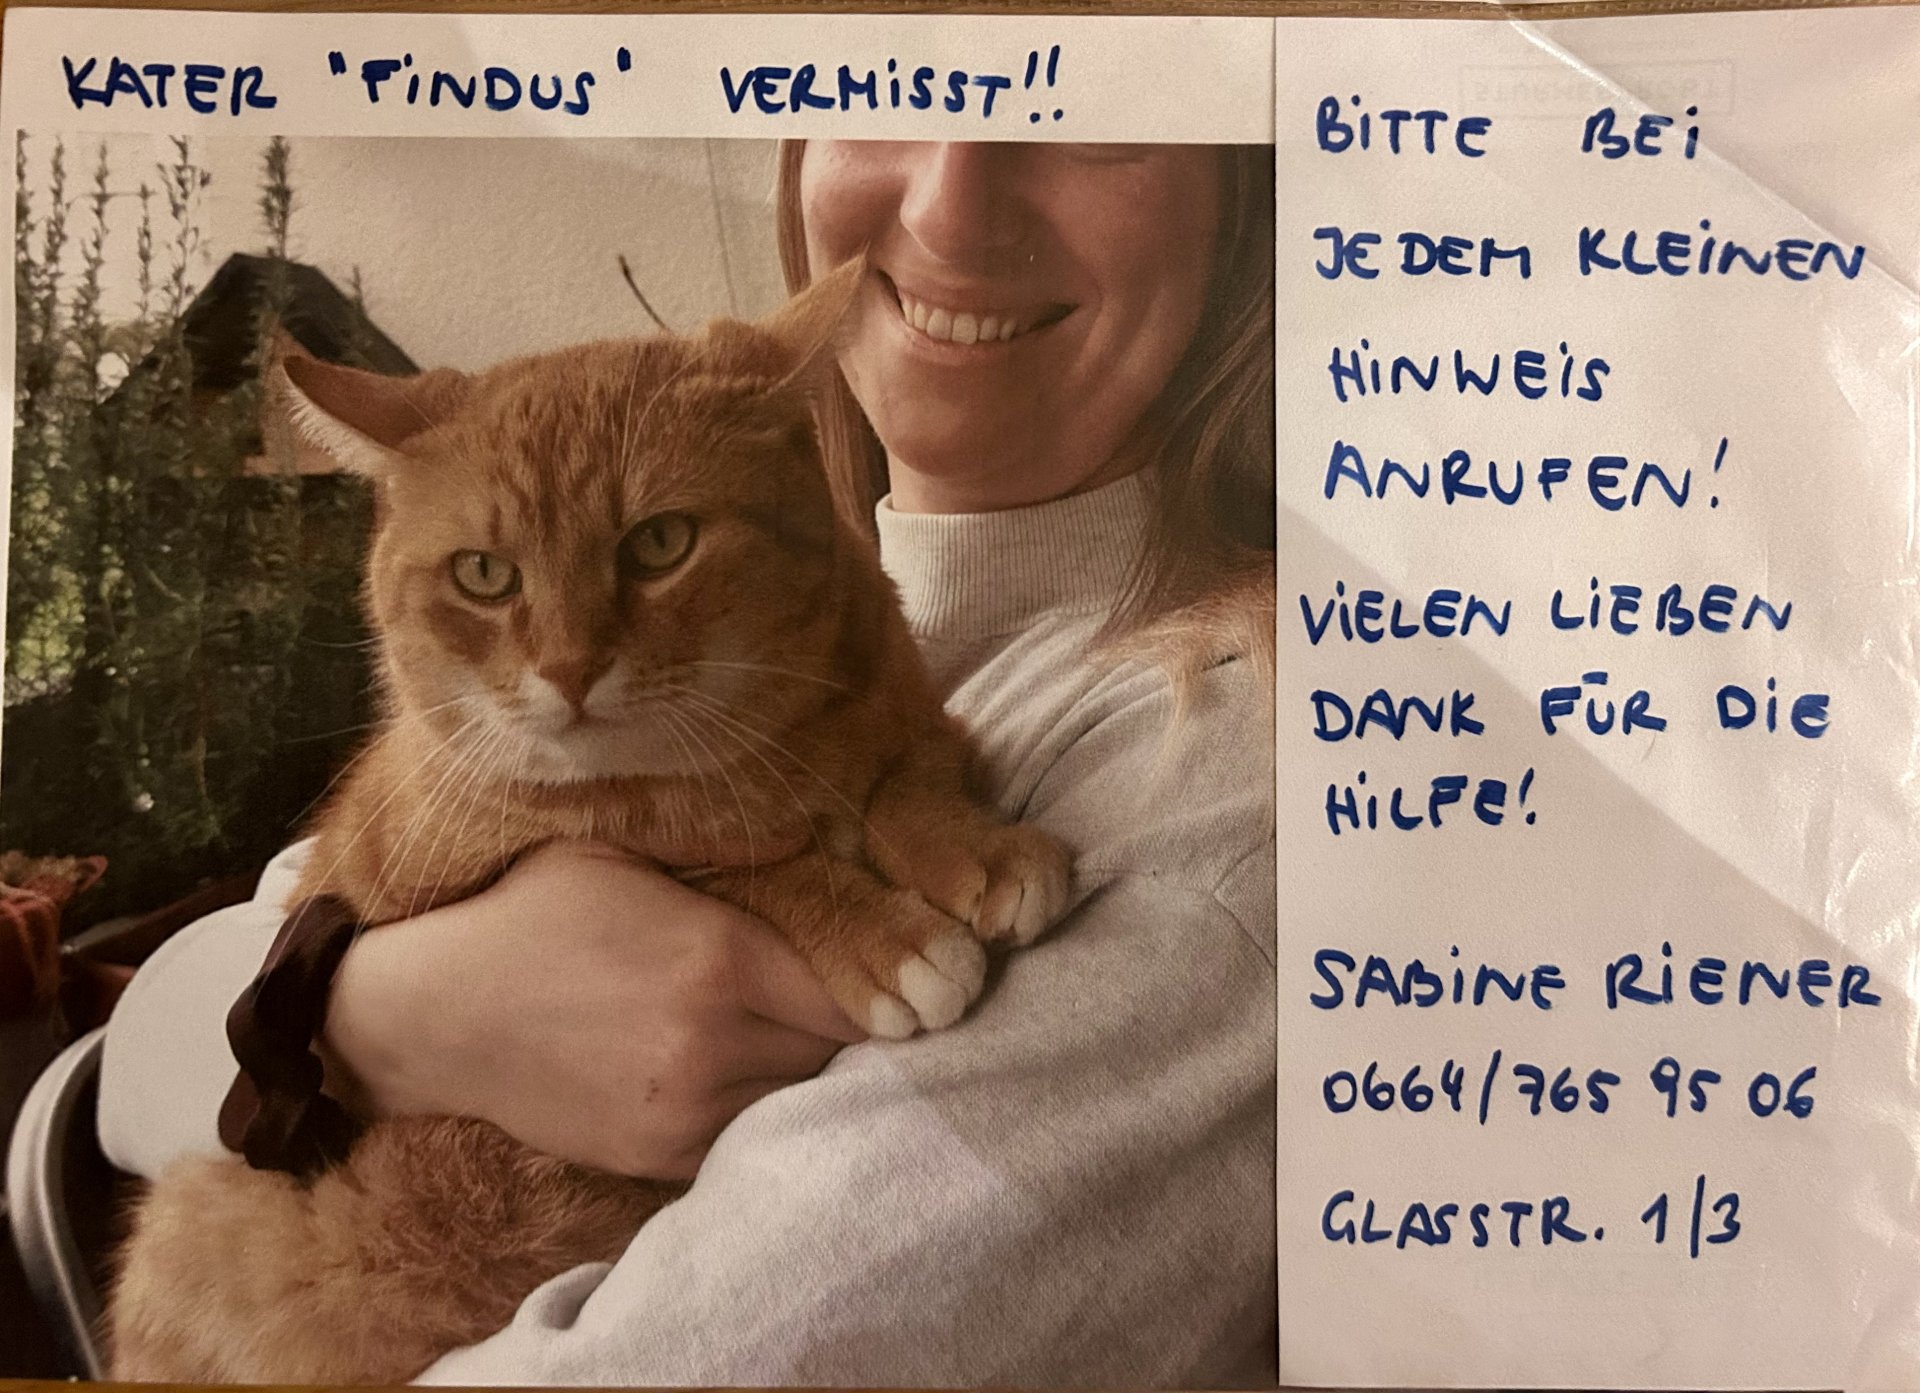 KATER "FINDUS" VERMISST!!
BITTE BEI
JEDEM KLEINEN
HINWEIS
ANRUFEN!
VIELEN LIEBEN
DANK FÜR DIE
HILFE!
SABINE RIENER
0664/765 95 06
GLASSTR. 1/3